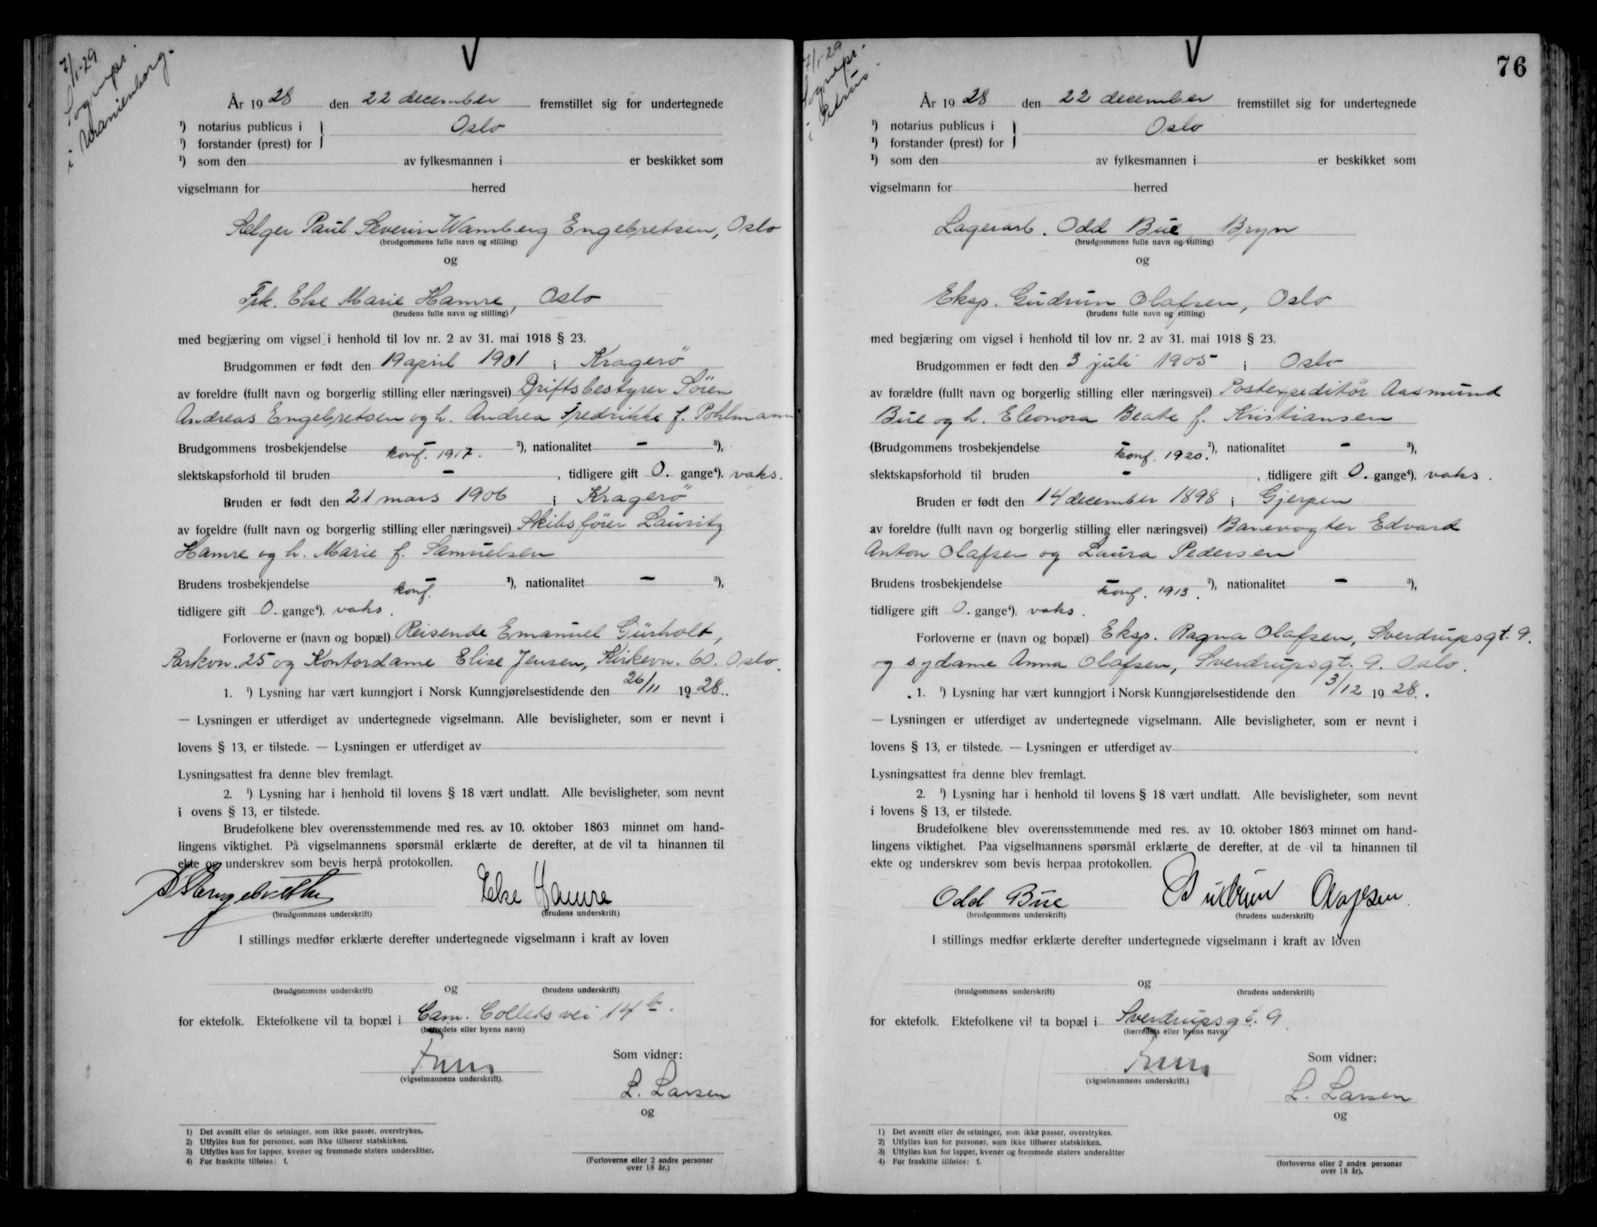 7/1-29
Sognepr.
i Uranienborg.
År 1928 den 22 december fremstillet sig for undertegnede
¹) notarius publicus i } Oslo
¹) forstander (prest) for
¹) som den av fylkesmannen i er beskikket som
vigselmann for herred
Selger Paul Severin Wamberg Engebretsen, Oslo
(brudgommens fulle navn og stilling)
og
Frk. Else Marie Hamre, Oslo
(brudens fulle navn og stilling)
med begjæring om vigsel i henhold til lov nr. 2 av 31. mai 1918 § 23.
Brudgommen er født den 19 april 1901 i Kragerö
av foreldre (fullt navn og borgerlig stilling eller næringsvei) Driftsbestyrer Sören
Andreas Engebretsen og h. Andrea Fredrikke f. Pohlmann
Brudgommens trosbekjendelse – konf. 1917. ²), nationalitet – ³),
slektskapsforhold til bruden – , tidligere gift 0. gange⁴). vaks.
Bruden er født den 21 mars 1906 i Kragerö
av foreldre (fullt navn og borgerlig stilling eller næringsvei) Skibsfører Lauritz
Hamre og h. Marie f. Samuelsen
Brudens trosbekjendelse – konf. ²), nationalitet – ³),
tidligere gift 0. gange⁴). vaks.
Forloverne er (navn og bopæl) Reisende Emanuel Gürholt,
Parkvn. 25 og Kontordame Elise Jensen, Kirkevn. 60. Oslo.
1. ¹) Lysning har vært kunngjort i Norsk Kunngjørelsestidende den 26/11 1928.
— Lysningen er utferdiget av undertegnede vigselmann. Alle bevisligheter, som er nevnt i
lovens § 13, er tilstede. — Lysningen er utferdiget av
Lysningsattest fra denne blev fremlagt.
2. ¹) Lysning har i henhold til lovens § 18 vært undlatt. Alle bevisligheter, som nevnt
i ovens § 13, er tilstede.
Brudefolkene blev overensstemmende med res. av 10. oktober 1863 minnet om hand-
lingens viktighet. På vigselmannens spørsmål erklærte de derefter, at de vil ta hinannen til
ekte og underskrev som bevis herpå protokollen.
Else Hamre
(brudgommens underskrift) (brudens underskrift)
I stillings medfør erklærte derefter undertegnede vigselmann i kraft av loven
og
(brudgommens underskrift) (brudens underskrift)
for ektefolk. Ektefolkene vil ta bopæl i Cam. Colletts vei 14 b.
(herredets eller byens navn)
Som vidner:
(vigselmannens underskrift).
L. Larsen
og
1) Det avsnitt eller de setninger, som ikke passer, overstrykes.
2) Utfylles kun for personer, som ikke tilhører statskirken.
3) Utfylles kun for lapper, kvener og fremmede staters undersåtter.
4) For fraskilte tilføies: f.
(Forloverne eller 2 andre personer
over 18 år.)
76
7/1-29
Sognepr.
i Petrus.
År 1928 den 22 december fremstillet sig for undertegnede
¹) notarius publicus i } Oslo
¹) forstander (prest) for
¹) som den av fylkesmannen i er beskikket som
vigselmann for herred
Lagerarb. Odd Bue, Bryn
(brudgommens fulle navn og stilling)
og
Eksp. Gudrun Olafsen, Oslo
(brudens fulle navn og stilling)
med begjæring om vigsel i henhold til lov nr. 2 av 31. mai 1918 § 23.
Brudgommen er født den 3 juli 1905 i Oslo
av forældre (fullt navn og borgerlig stilling eller næringsvei) Postexpeditör Aasmund
Bue og h. Eleonora Beate f. Kristiansen
(Brudgommens trosbekjendelse – konf. 1920. ²), nationalitet – ³),
slektskapsforhold til bruden – , tidligere gift 0. gange⁴). vaks.
Bruden er født den 14 december 1898 i Gjerpen
av foreldre (fullt navn og borgerlig stilling eller næringsvei) Banevogter Edvard
Anton Olafsen og Laura Pedersen
Brudens trosbekjendelse – konf. 1913. ²), nationalitet – ³),
tidligere gift 0. gange⁴). vaks.
Forloverne er (navn og bopæl) Eksp. Ragna Olafsen, Sverdrupsgt. 9.
og sydame Anna Olafsen, Sverdrupsgt. 9. Oslo.
1. ¹) Lysning har vært kunngjort i Norsk Kunngjørelsestidende den 3/12 1928.
— Lysningen er utferdiget av undertegnede vigselmann. Alle bevisligheter, som er nevnt i
lovens § 13, er tilstede. — Lysningen er utferdiget av
Lysningsattest fra denne blev fremlagt.
2. ¹) Lysning har i henhold til lovens § 18 vært undlatt. Alle bevisligheter, som nevnt
i lovens § 13, er tilstede.
Brudefolkene blev overensstemmende med res. av 10. oktober 1863 minnet om hand-
lingens viktighet. Paa vigselmannens spørsmål erklærte de derefter, at de vil ta hinannen til
ekte og underskrev som bevis herpaa protokollen.
Odd Bue Gudrun Olafsen.
(brudgommens underskrift) (brudens underskrift)
I stillings medfør erklærte derefter undertegnede vigselmann i kraft av loven
og
(brudgommens underskrift) (brudens underskrift)
for ektefolk. Ektefolkene vil ta bopæl i Sverdrupsgt. 9.
(herredets eller byens navn)
Som vidner:
(vigselmannens underskrift.)
L. Larsen
og
1) Det avsnitt eller de setninger, som ikke passer, overstrykes.
2) Utfylles kun for personer, som ikke tilhører statskirken.
3) Utfylles kun for lapper, kvener og fremmede staters undersåtter
4) For fraskilte tilføies: f.
(forloverne eller 2 andre personer
over 18 år).